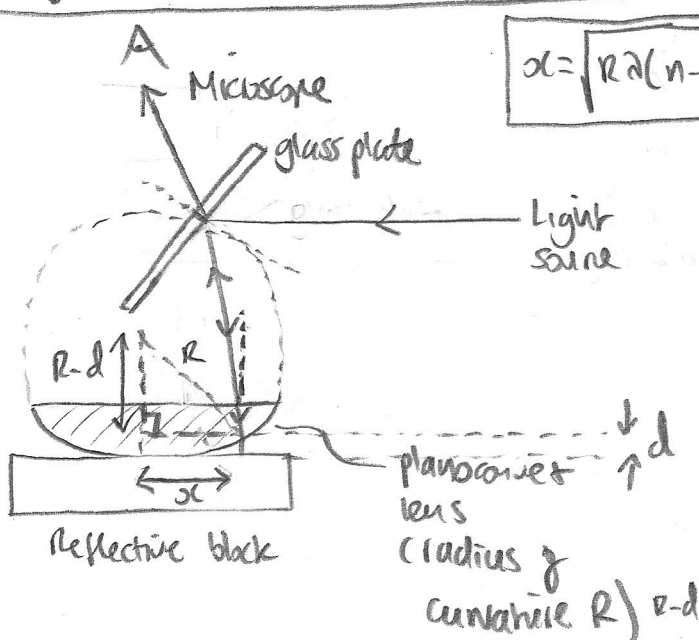 A
Microscope
x = √Rλ(n-
glass plate
Light
source
R-d
R
d
x
planoconvex
lens
(radius of
curvature R) R-d
Reflective block